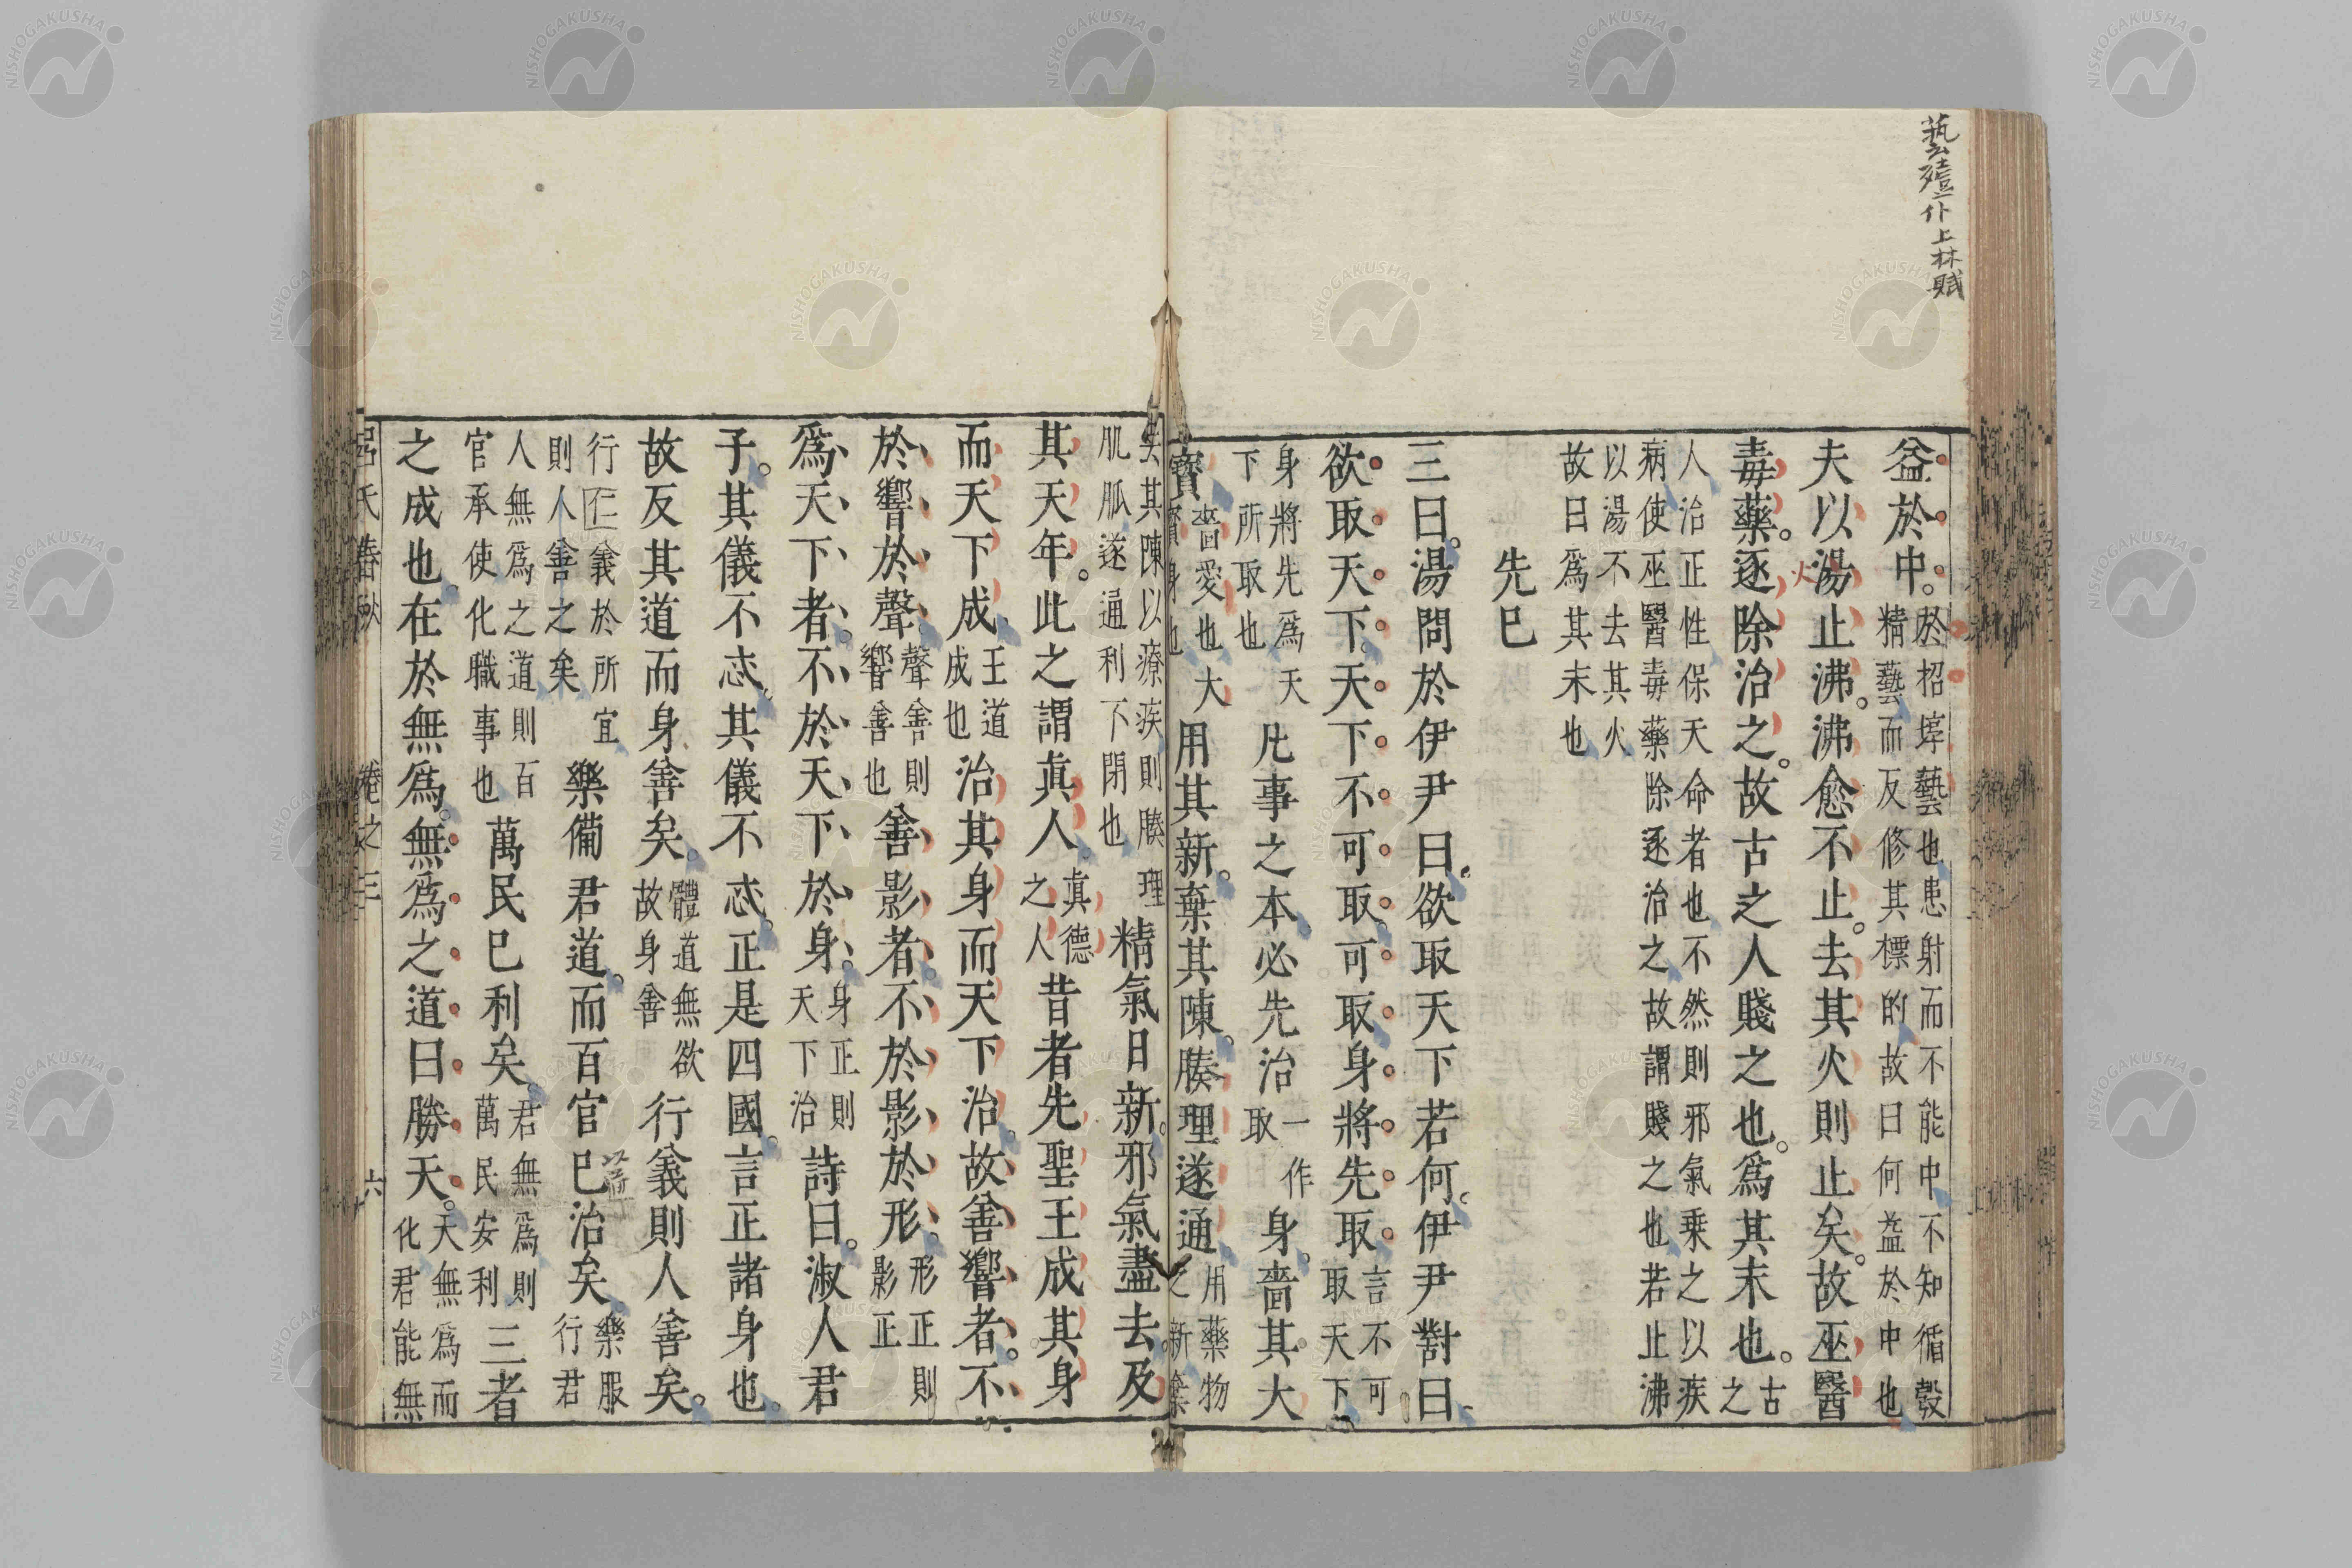 藝殪仆上林賦
益於中。於招埻藝也患射而不能中不知循彀精藝而反修其標的故曰何益於中也
夫以湯止沸。沸愈不止。去其火則止矣。故巫醫
毒藥。逐除治之。故古之人賤之也。爲其末也。古之
人治正性保天命者也不然則邪氣乗之以疾病使巫醫毒藥除逐治之故謂賤之也若止沸
以湯不去其火故曰爲其末也
先巳
三曰。湯問於伊尹曰。欲取天下若何。伊尹對曰。
欲取天下。天下不可取。可取。身將先取。言不可取天下
身將先爲天下所取也凡事之本。必先治一作取身。嗇其大
寶嗇愛也大寳身也用其新。棄其陳。腠理遂通用藥物之新棄
其陳以療疾則腠理肌脉遂通利不閉也精氣日新。邪氣盡去。及
其天年。此之謂真人。真德之人昔者先聖王成其身
而天下成。王道成也治其身而天下治。故善響者。不
於響於聲。聲善則響善也善影者。不於影於形。形正則影正
爲天下者。不於天下於身。身正則天下治詩曰。淑人君
子。其儀不忒。其儀不忒。正是四國。言正諸身也。
故反其道而身善矣。體道無欲故身善行義則人善矣。
行正義於所宜則人善之矣樂備君道。而百官巳治矣。樂服行君
人無爲之道則百官承使化職事也萬民巳利矣。君無爲則萬民安利三者
之成也。在於無爲。無爲之道曰勝天。天無爲而化君能無
呂氏春秋 卷之三 六